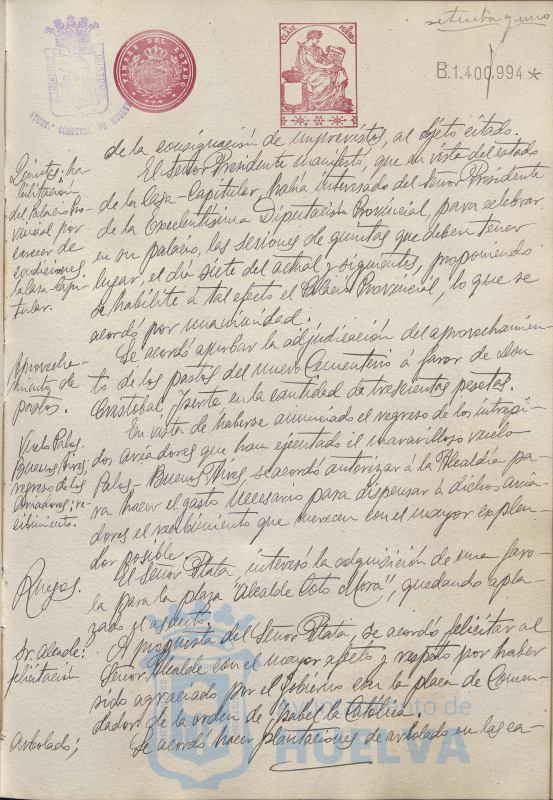 setenta y uno
TIMBRE DEL ESTADO
B.1.400,994 *
AYUNT.º CONSTNAL DE HUELVA
de la consignación de imprevistos, al objeto citado.
Quintas: ha-
bilitación
del Palacio Pro-
vincial por
carecer de
condiciones
la Casa Capi-
tular.
El Señor Presidente manifestó, que en vista del estado
de la Casa-Capitular, había interesado del Señor Presidente
de la Excelentísima Diputación Provincial, para celebrar
en su palacio, las sesiones de quintas que deben tener
lugar, el día siete del actual y siguientes, proponiendo
se habilite á tal efecto el Palacio Provincial, lo que se
acordó por unanimidad.
Aprovecha-
miento de
pastos.
Se acordó aprobar la adjudicación del aprovechamien-
to de los pastos del nuevo Cementerio á favor de Don
Cristobal, fuerte en la cantidad de trescientas pesetas.
Vuelo Palos-
Buenos Aires:
regreso de los
Aviadores; re-
cibimiento.
En vista de haberse anunciado el regreso de los intrepi-
dos aviadores que han ejecutado el maravilloso vuelo
Palos-Buenos Aires, se acordó autorizar á la Alcaldía pa-
ra hacer el gasto necesario para dispensar á dichos avia-
dores el recibimiento que merecen con el mayor esplen-
dor posible.
Ruegos.
El Señor Plata, interesó la adquisición de una faro-
la para la plaza "Alcalde Coto Mora", quedando apla-
zado el asunto.
Sr. Alcalde:
felicitación
A propuesta del Señor Plata, se acordó felicitar al
Señor Alcalde con el mayor afecto y respeto por haber
sido agraciado por el Gobierno con la placa de Comen-
dador de la orden de Isabel la Católica.
Arbolado;
Se acordó hacer plantaciones de arbolado en las ca-
Ayuntamiento de
HUELVA